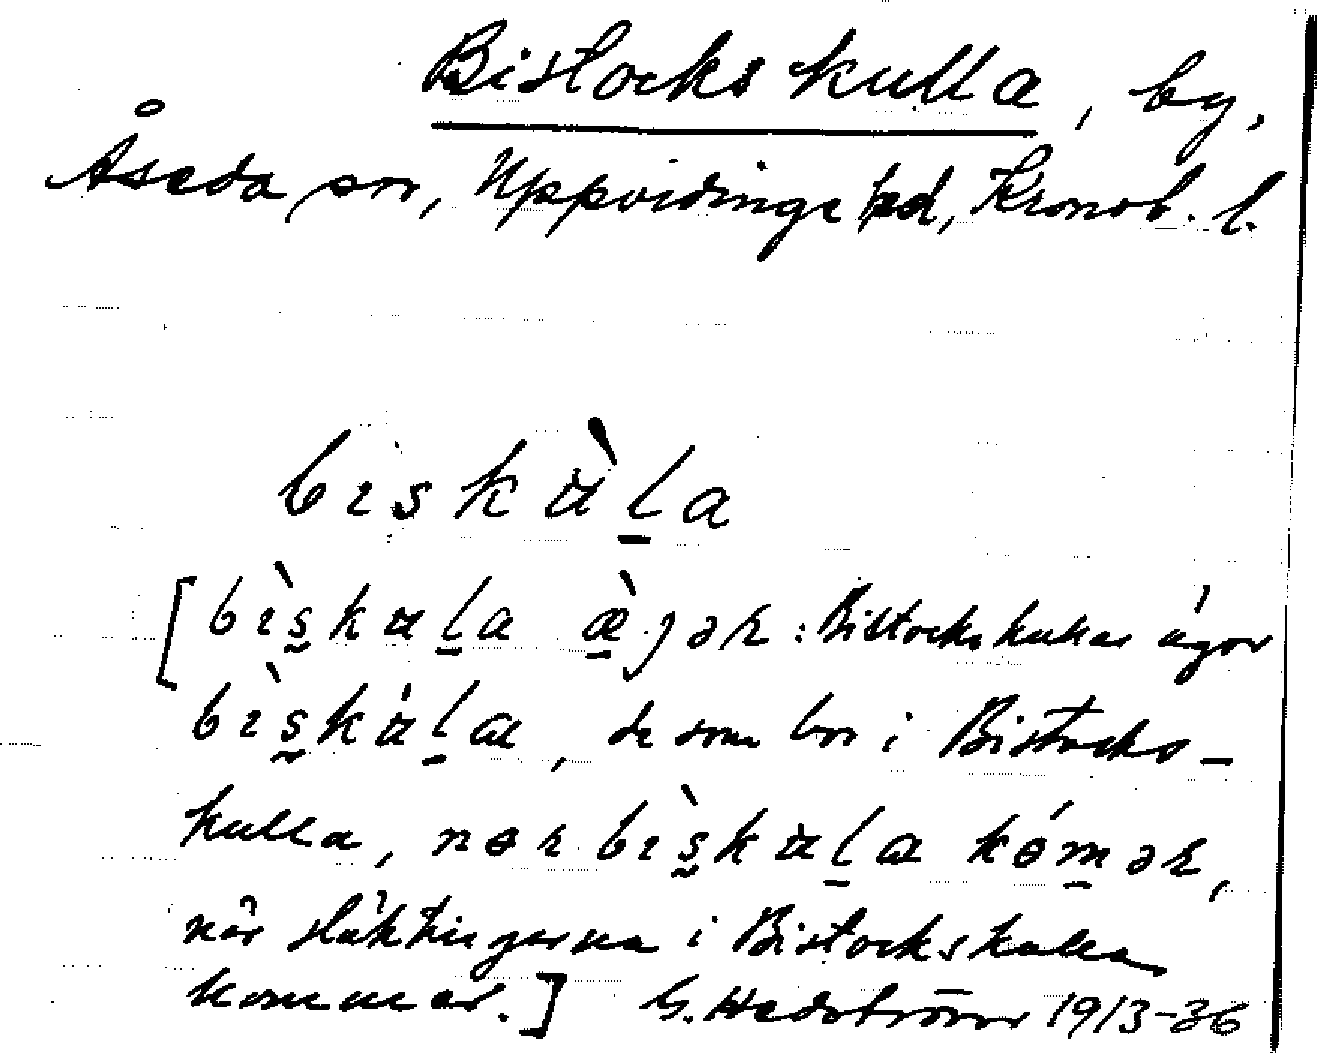 Bistockskulla, by.
Åseda sn, Uppvidinge hd, Kronob. l.
bɪskàla
[bɪ̀skala æ̀jər : Bistockskullas ägor
bɪ̀skala, de som bor i Bistocks-
kulla, nər bɪ̀skala kómər,
när släktingarna i Bistockskulla
kommer.] G. Hedström 1913-36